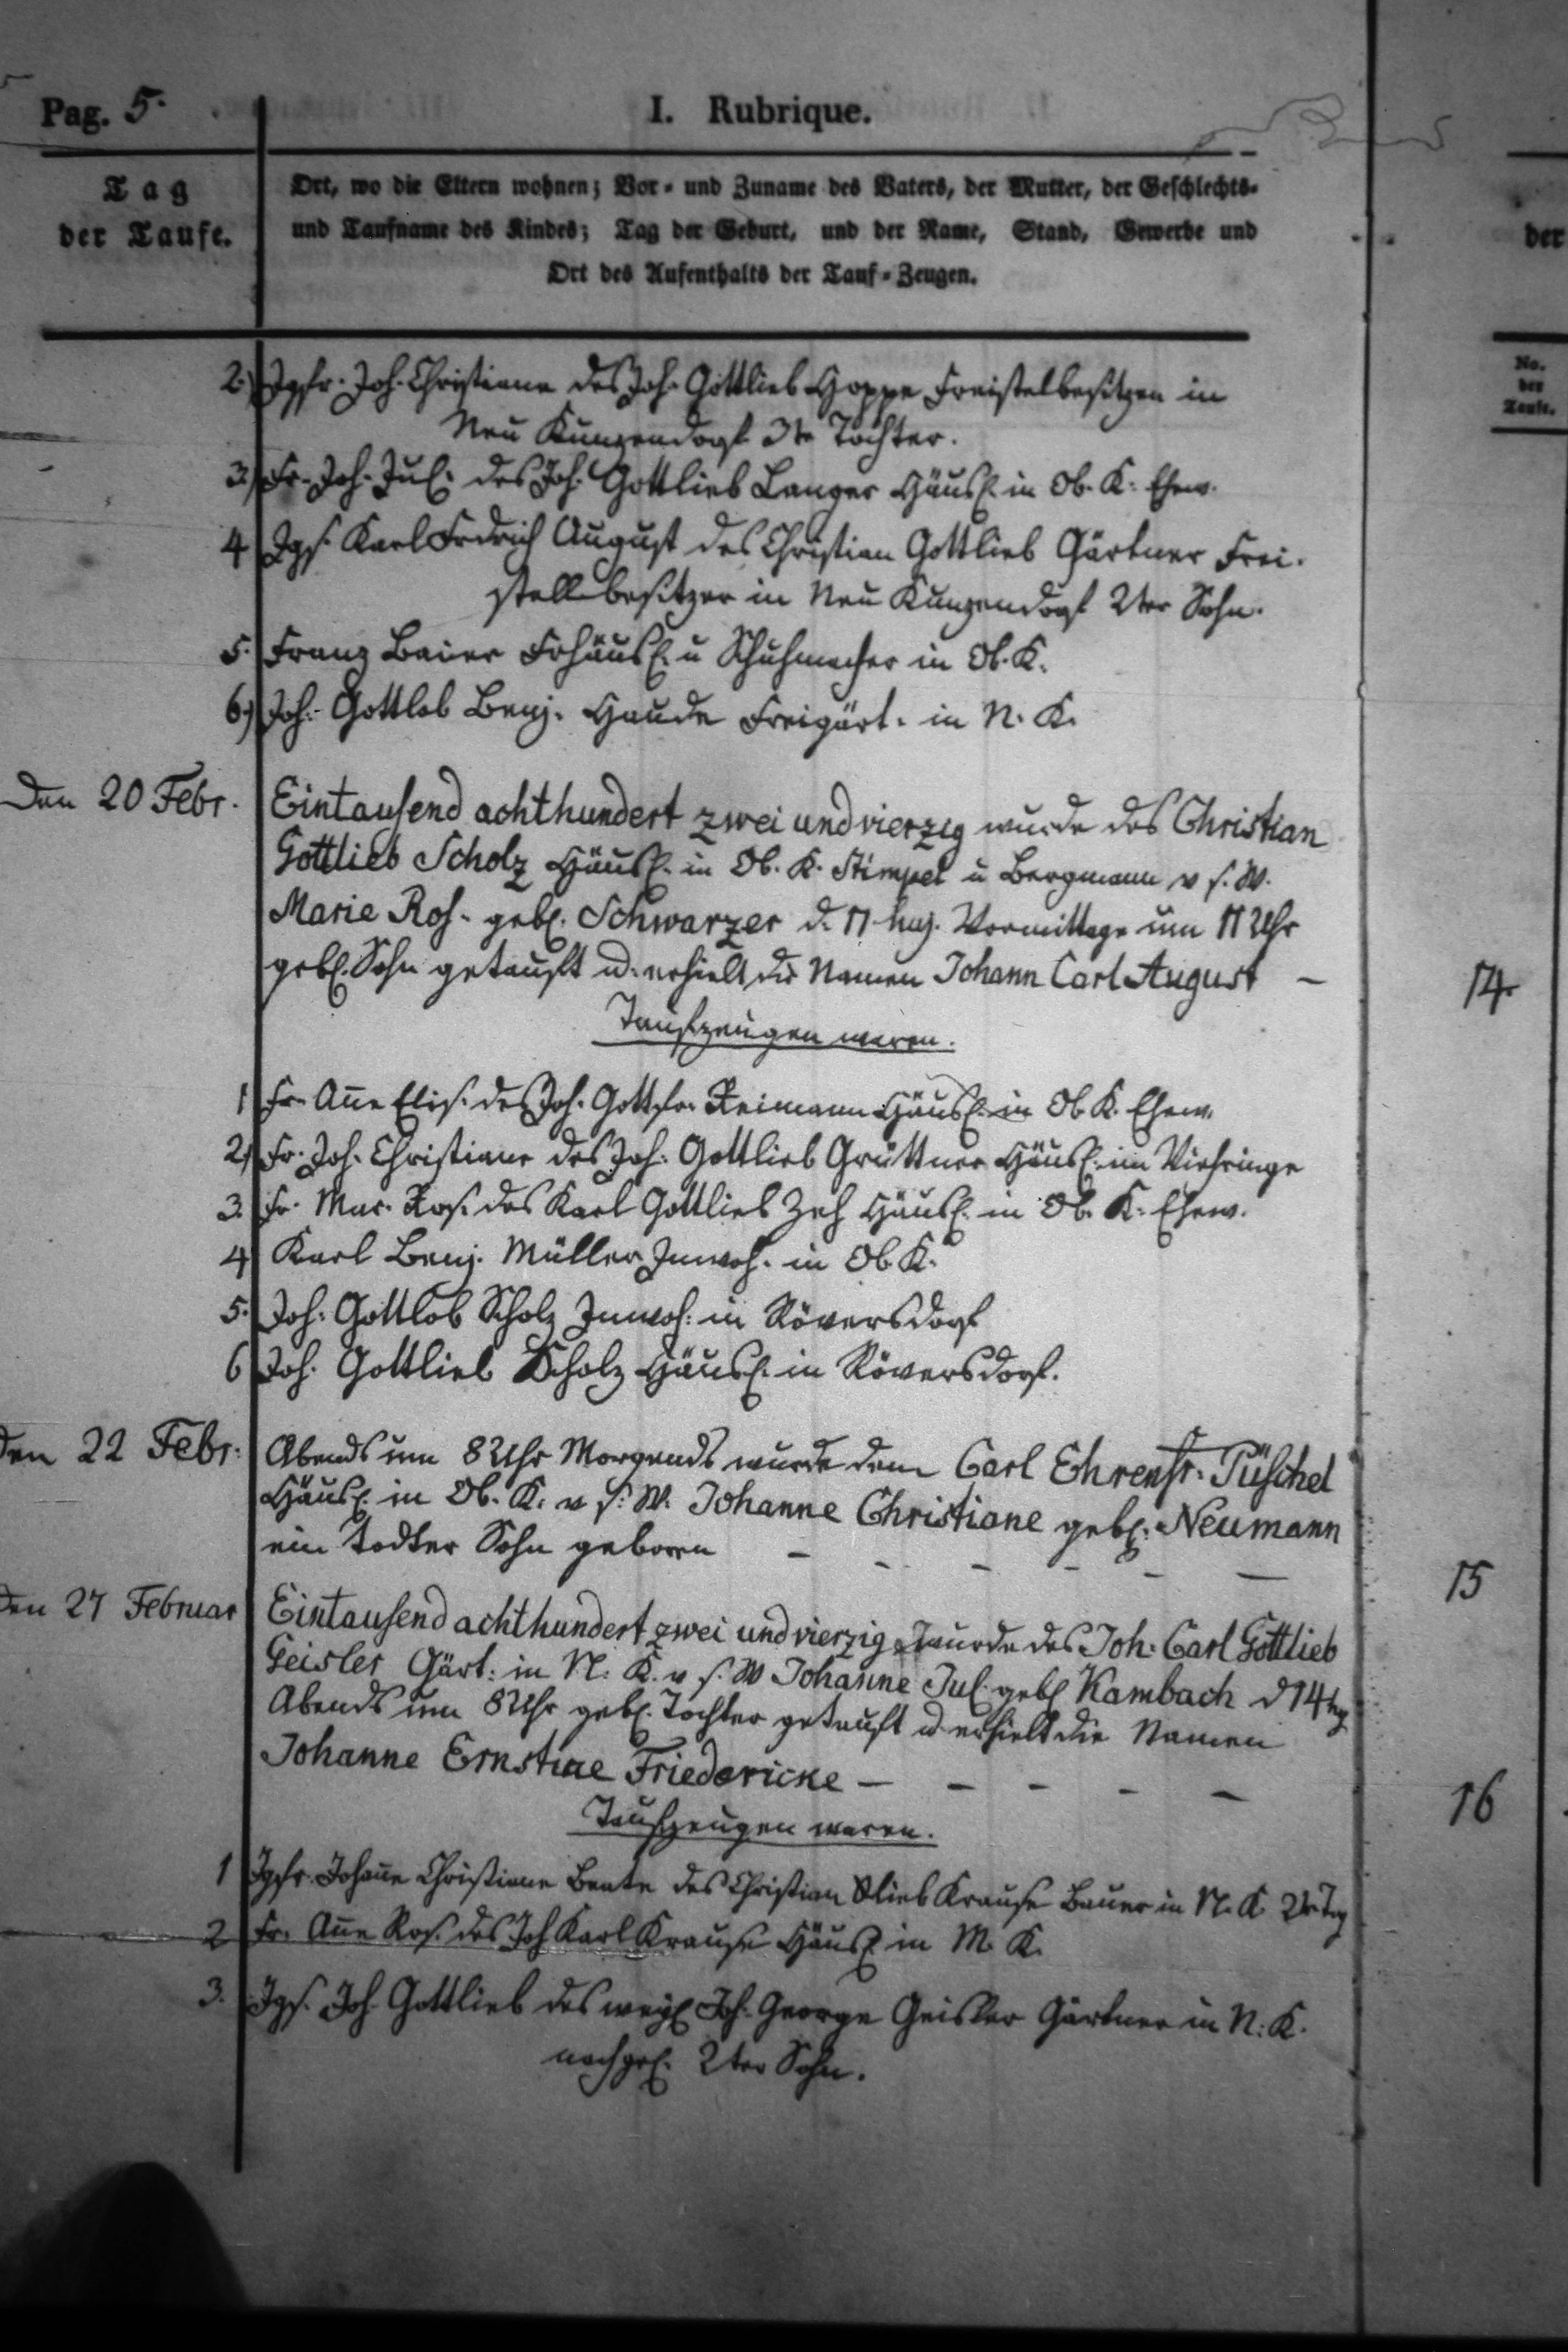 Pag. 5.
I. Rubrique.
Tag
der Taufe.
Ort, wo die Eltern wohnen; Vor- und Zuname des Vaters, der Mutter, der Geschlechts-
und Taufname des Kindes; Tag der Geburt, und der Name, Stand, Gewerbe und
Ort des Aufenthalts der Tauf-Zeugen.
der
No.
der
Taufe.
2.) Jgfr. Joh. Christiane des Joh. Gottlieb Hoppe Freistelbesitzer in
Neu Kunzendorf 3te Tochter.
3.) Fr. Joh. Jul. des Joh. Gottlieb Langer Häusl. in Ob. K. Ehew.
4 Jgs. Karl Frdrich August des Christian Gottlieb Gärtner Frei-
stellbesitzer in Neu Kunzendorf 2ter Sohn.
5. Franz Baier Frhäusl. u Schuhmacher in Ob. K.
6.) Joh. Gottlob Benj. Haude Freigärt. in N. K.
Den 20 Febr. Eintausend achthundert zwei und vierzig wurde des Christian
Gottlieb Scholz Häusl. in Ob. K. Stimpel u Bergmann v s. W.
Marie Ros. gebl. Schwarzer d. 17 huj. Vormittags um 11 Uhr
gebl. Sohn getauft u. erhielt die Namen Johann Carl August –
14.
Taufzeugen waren.
1 Fr. Anne Elis. des Joh. Gottfr. Reimann Häusl. in Ob. K. Ehew.
2) Fr. Joh. Christiane des Joh. Gottlieb Grüttner Häusl. im Viehringe
3. Fr. Mar. Ros. des Karl Gottlieb Zeh Häusl. in Ob. K. Ehew.
4 Karl Benj. Müller Inwoh. in Ob. K.
5. Joh. Gottlob Scholz Inwoh. in Röversdorf
6 Joh. Gottlieb Scholz Häusl. in Röversdorf.
Den 22 Febr. Abends um 8 Uhr Morgends wurde dem Carl Ehrenfr. Püschel
Häusl. in Ob. K. v s. W. Johanne Christiane gebl. Neumann
ein todter Sohn geboren – – – – – –
15
Den 27 Februar Eintausend achthundert zwei und vierzig wurde des Joh. Carl Gottlieb
Geisler Gärt. in N. K. v s. W Johanne Jul. gebl Kambach d 14 huj
Abends um 8 Uhr gebl. Tochter getauft u. erhielt die Namen
Johanne Ernstine Friedericke – – – – –
16
Taufzeugen waren.
1 Jgfr. Johanne Christiane Beate des Christian Glieb Krause Bauer in N. K 2te
2 Fr. Anne Ros. des Joh Karl Krause Häusl in M. K.
3. Jgs. Joh. Gottlieb des weyl Joh. George Geisler Gärtner in N. K.
nachgel. 2ter Sohn.